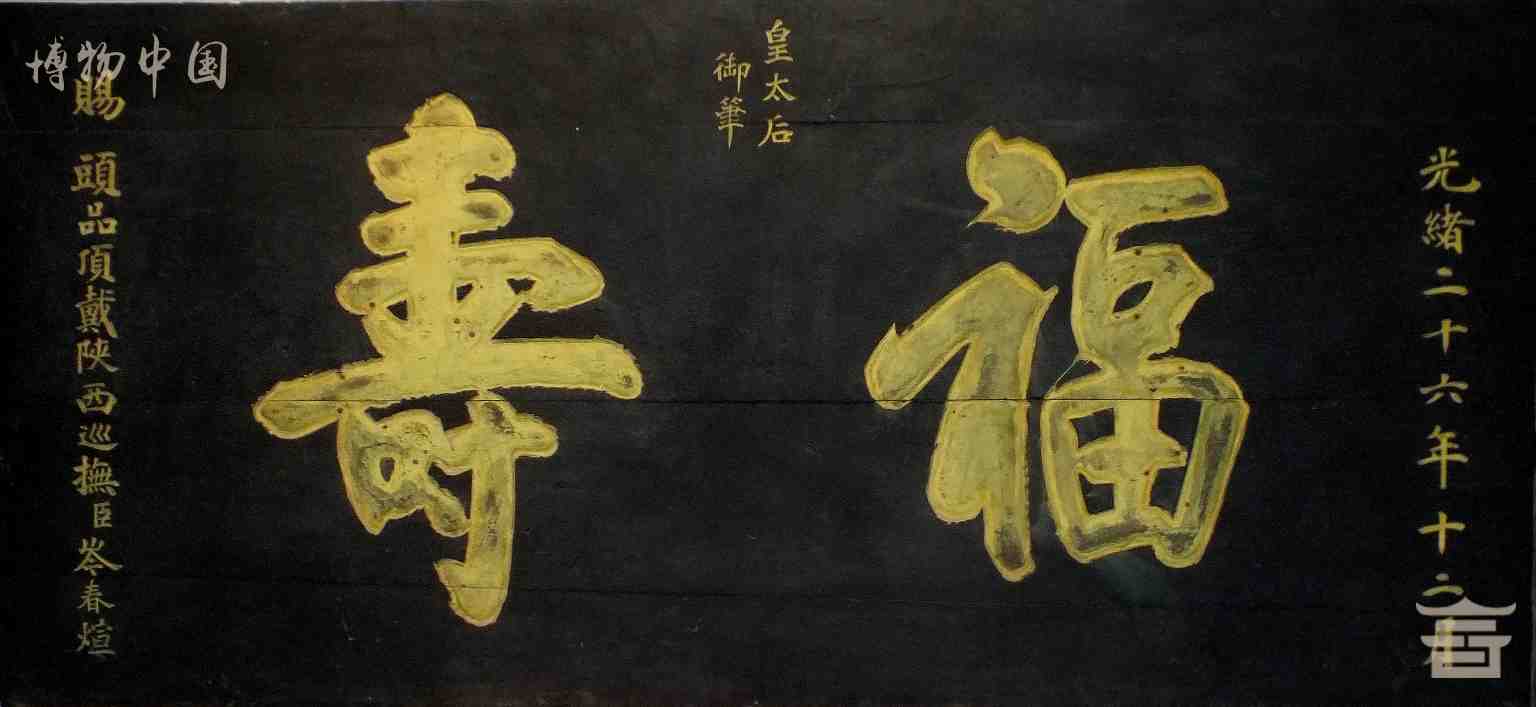 光緒二十六年十二月
福
皇太后
御筆
壽
賜
頭品頂戴陝西巡撫臣岑春煊
博物中国